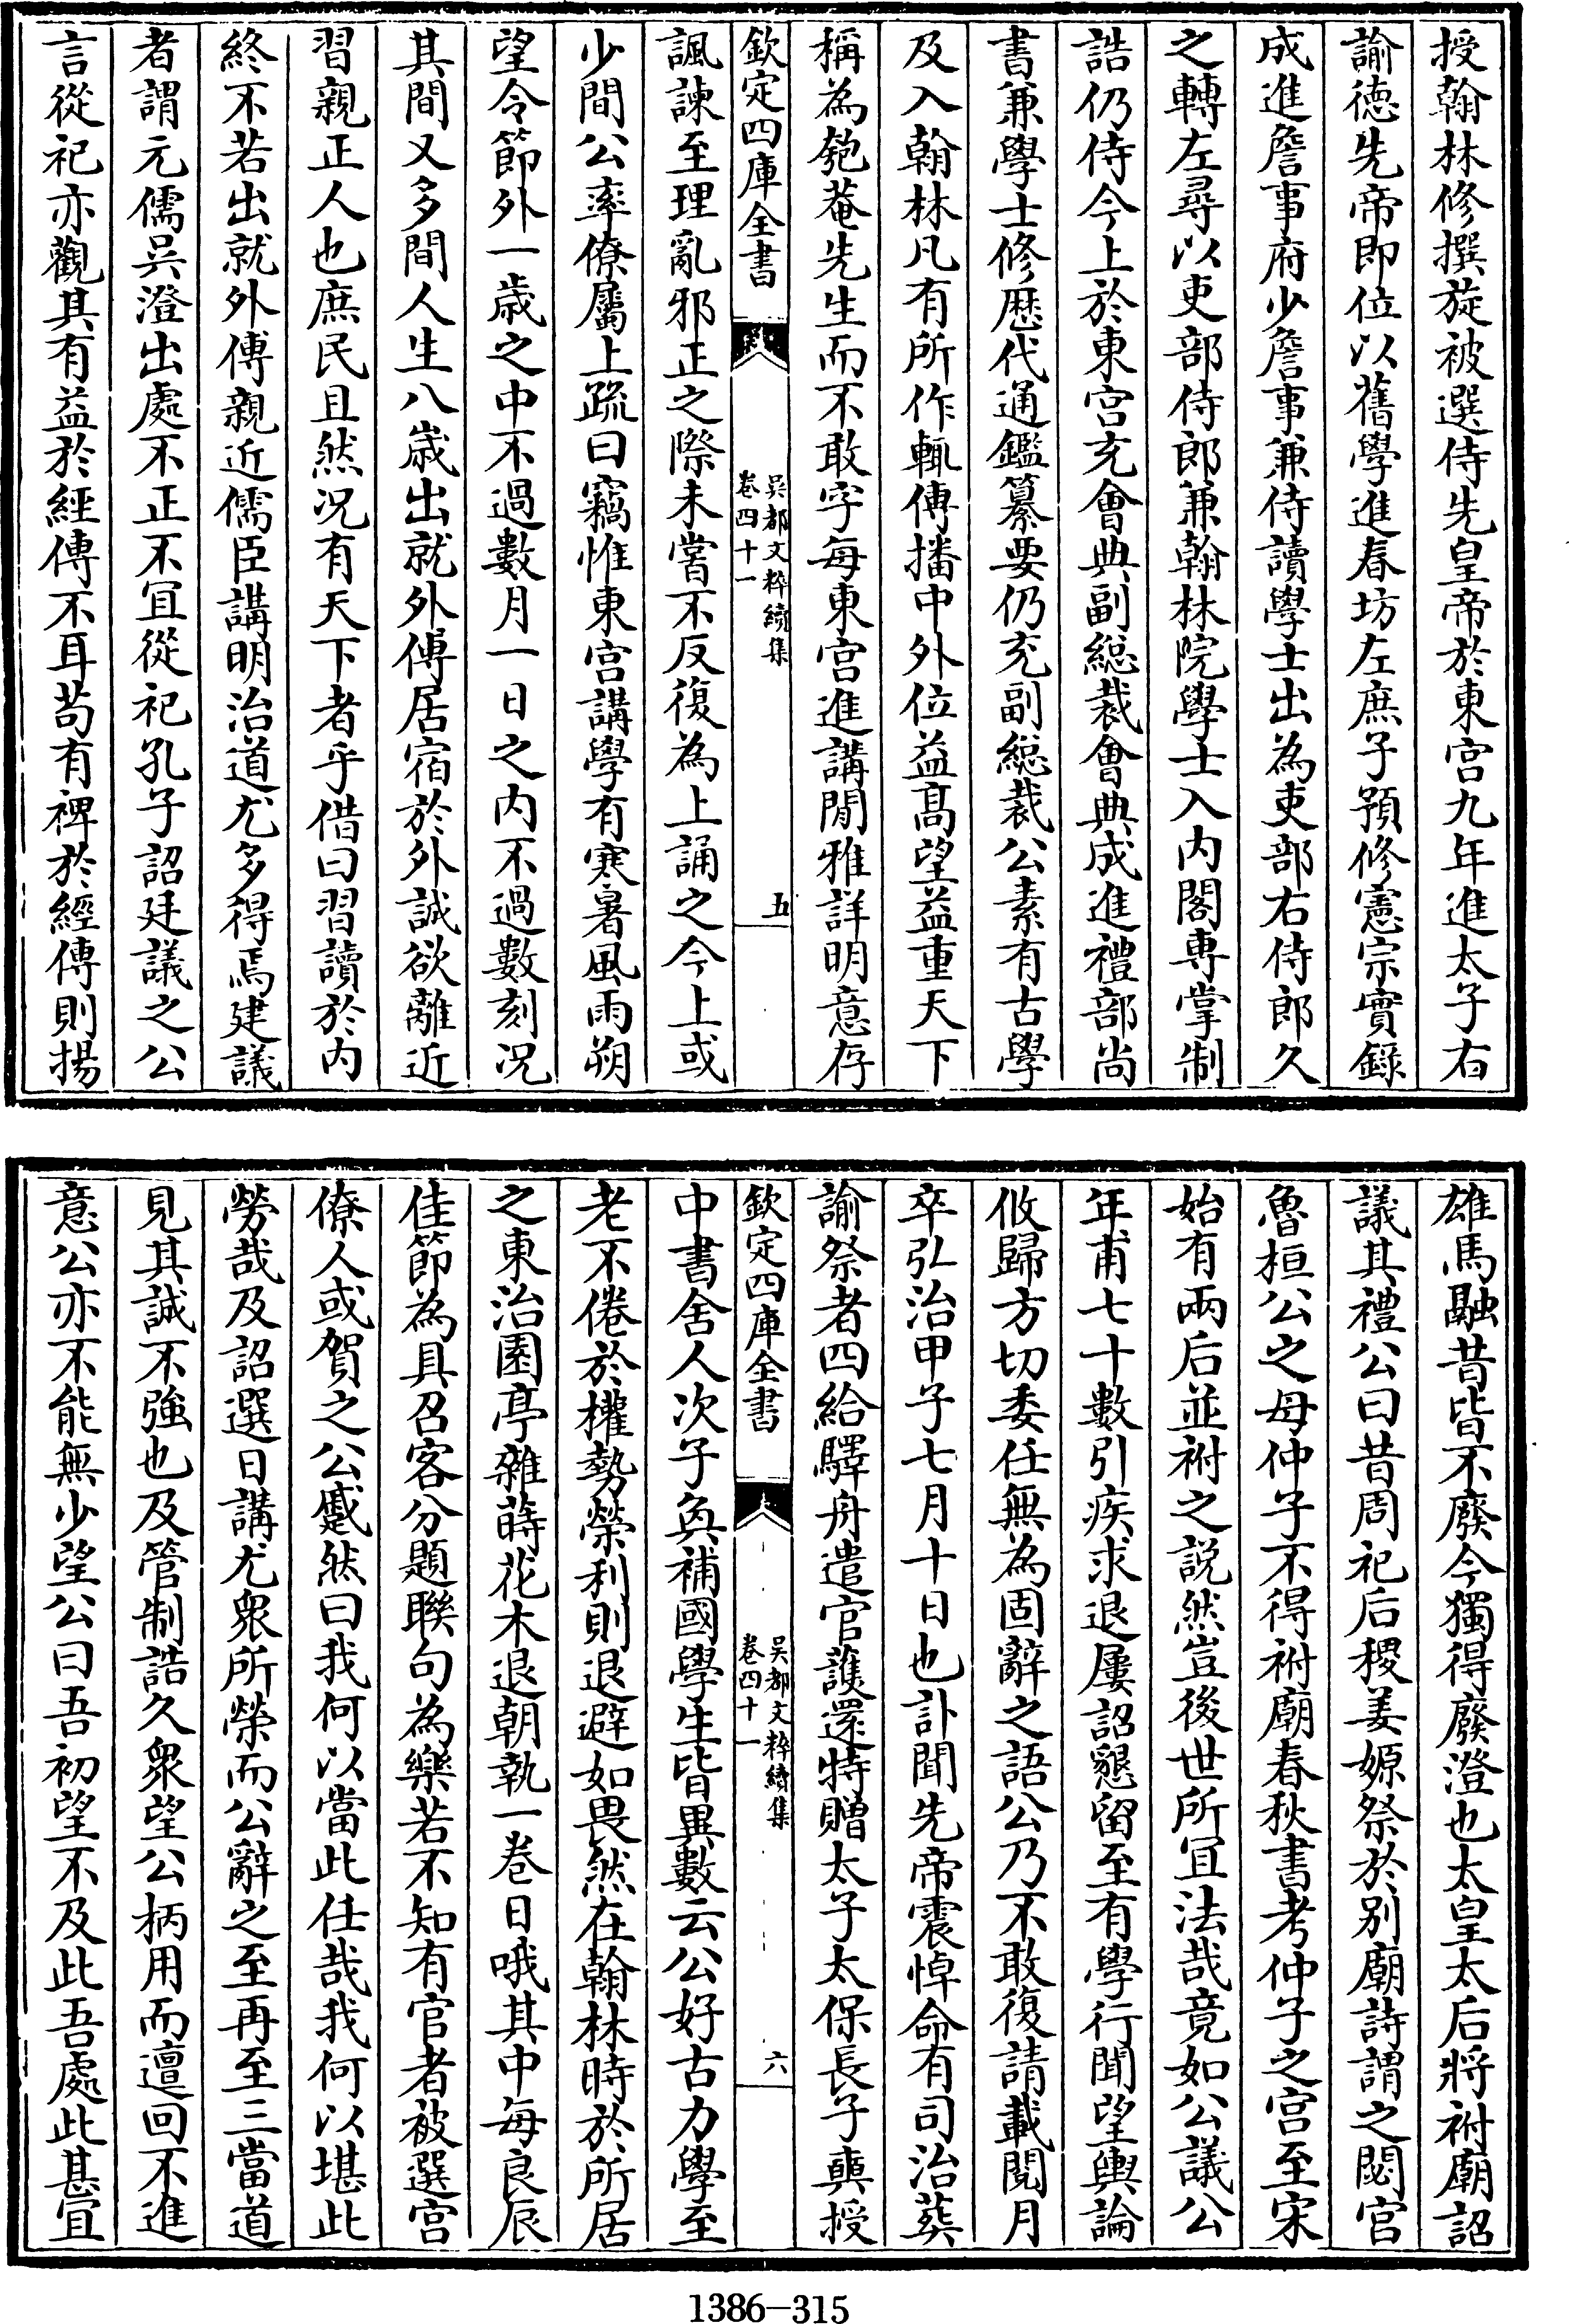 授翰林修撰旋被選侍先皇帝於東宮九年進太子右
諭徳先帝即位以舊學進春坊左庶子預修憲宗實錄
成進詹事府少詹事兼侍讀學士出為吏部右侍郎久
之轉左尋以吏部侍郎兼翰林院學士入内閣專掌制
誥仍侍今上於東宮充會典副総裁會典成進禮部尚
書兼學士修歴代通鑑纂要仍充副総裁公素有古學
及入翰林凡有所作輒傳播中外位益髙望益重天下
稱為匏菴先生而不敢字每東宮進講閒雅詳明意存
欽定四庫全書
吳都文粹續集
卷四十一
五
諷諫至理亂邪正之際未嘗不反復為上誦之今上或
少間公率僚屬上疏曰竊惟東宮講學有寒暑風雨朔
望令節外一歳之中不過數月一日之内不過數刻况
其間又多間人生八歳出就外傅居宿於外誠欲離近
習親正人也庶民且然况有天下者乎借曰習讀於内
終不若出就外傅親近儒臣講明治道尤多得焉建議
者謂元儒吳澄出處不正不宜從祀孔子詔廷議之公
言從祀亦觀其有益於經傳不耳茍有裨於經傳則揚
雄馬融昔皆不廢今獨得廢澄也太皇太后將祔廟詔
議其禮公曰昔周祀后稷姜嫄祭於别廟詩謂之閟宮
魯桓公之母仲子不得祔廟春秋書考仲子之宮至宋
始有兩后並祔之説然豈後世所宜法哉竟如公議公
年甫七十數引疾求退屢詔懇留至有學行聞望輿論
攸歸方切委任無為固辭之語公乃不敢復請載閱月
卒弘治甲子七月十日也訃聞先帝震悼命有司治葬
諭祭者四給驛舟遣官護還特贈太子太保長子奭授
欽定四庫全書
吳都文粹續集
卷四十一
六
中書舍人次子奐補國學生皆異數云公好古力學至
老不倦於權勢榮利則退避如畏然在翰林時於所居
之東治園亭雜蒔花木退朝執一卷日哦其中每良辰
佳節為具召客分題聯句為樂若不知有官者被選宮
僚人或賀之公蹙然曰我何以當此任哉我何以堪此
勞哉及詔選日講尤衆所榮而公辭之至再至三當道
見其誠不強也及管制誥久衆望公柄用而邅回不進
意公亦不能無少望公曰吾初望不及此吾處此甚宜
1386-315